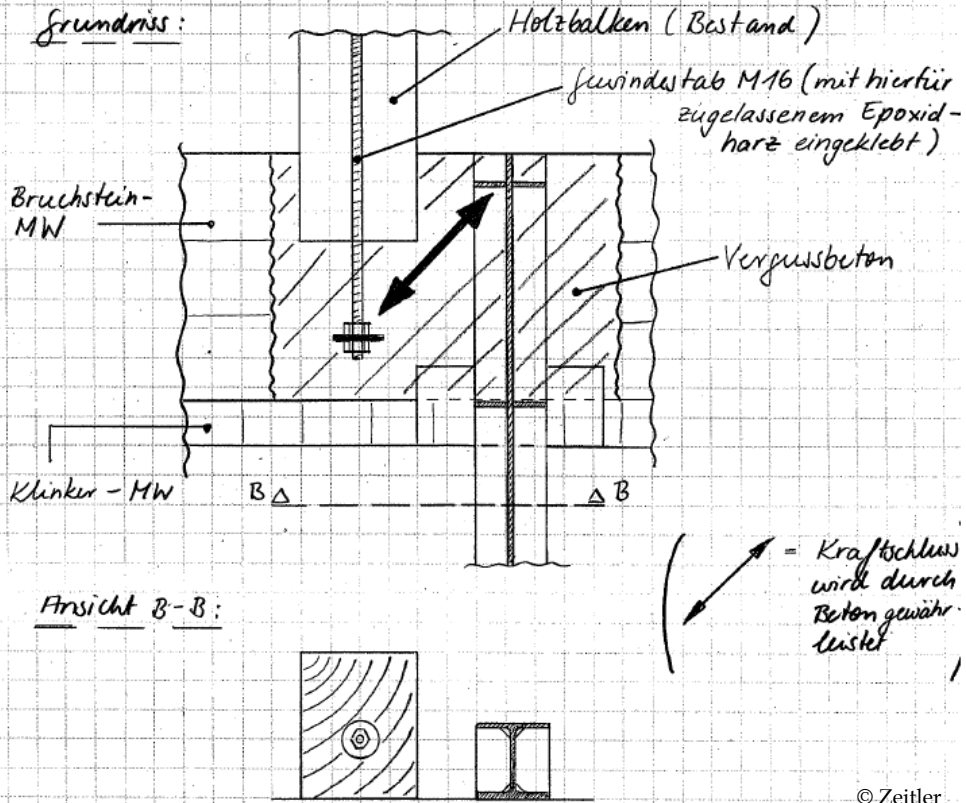 Grundriss:
Holzbalken (Bestand)
Gewindestab M16 (mit hierfür
zugelassenem Epoxid-
harz eingeklebt)
Bruchstein-
MW
Vergussbeton
Klinker - MW
B
B
= Kraftschluss
wird durch
Beton gewähr-
leistet
Ansicht B-B:
© Zeitler